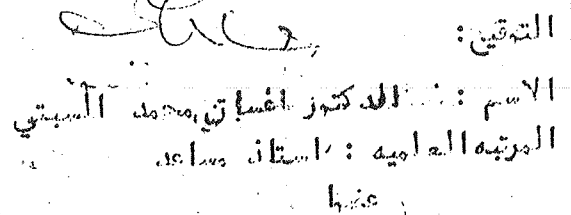 التوقيع:
الاسم : الدكتور احسان محمد السبتي
المرتبه العلميه : استاذ مساعد
عضوا